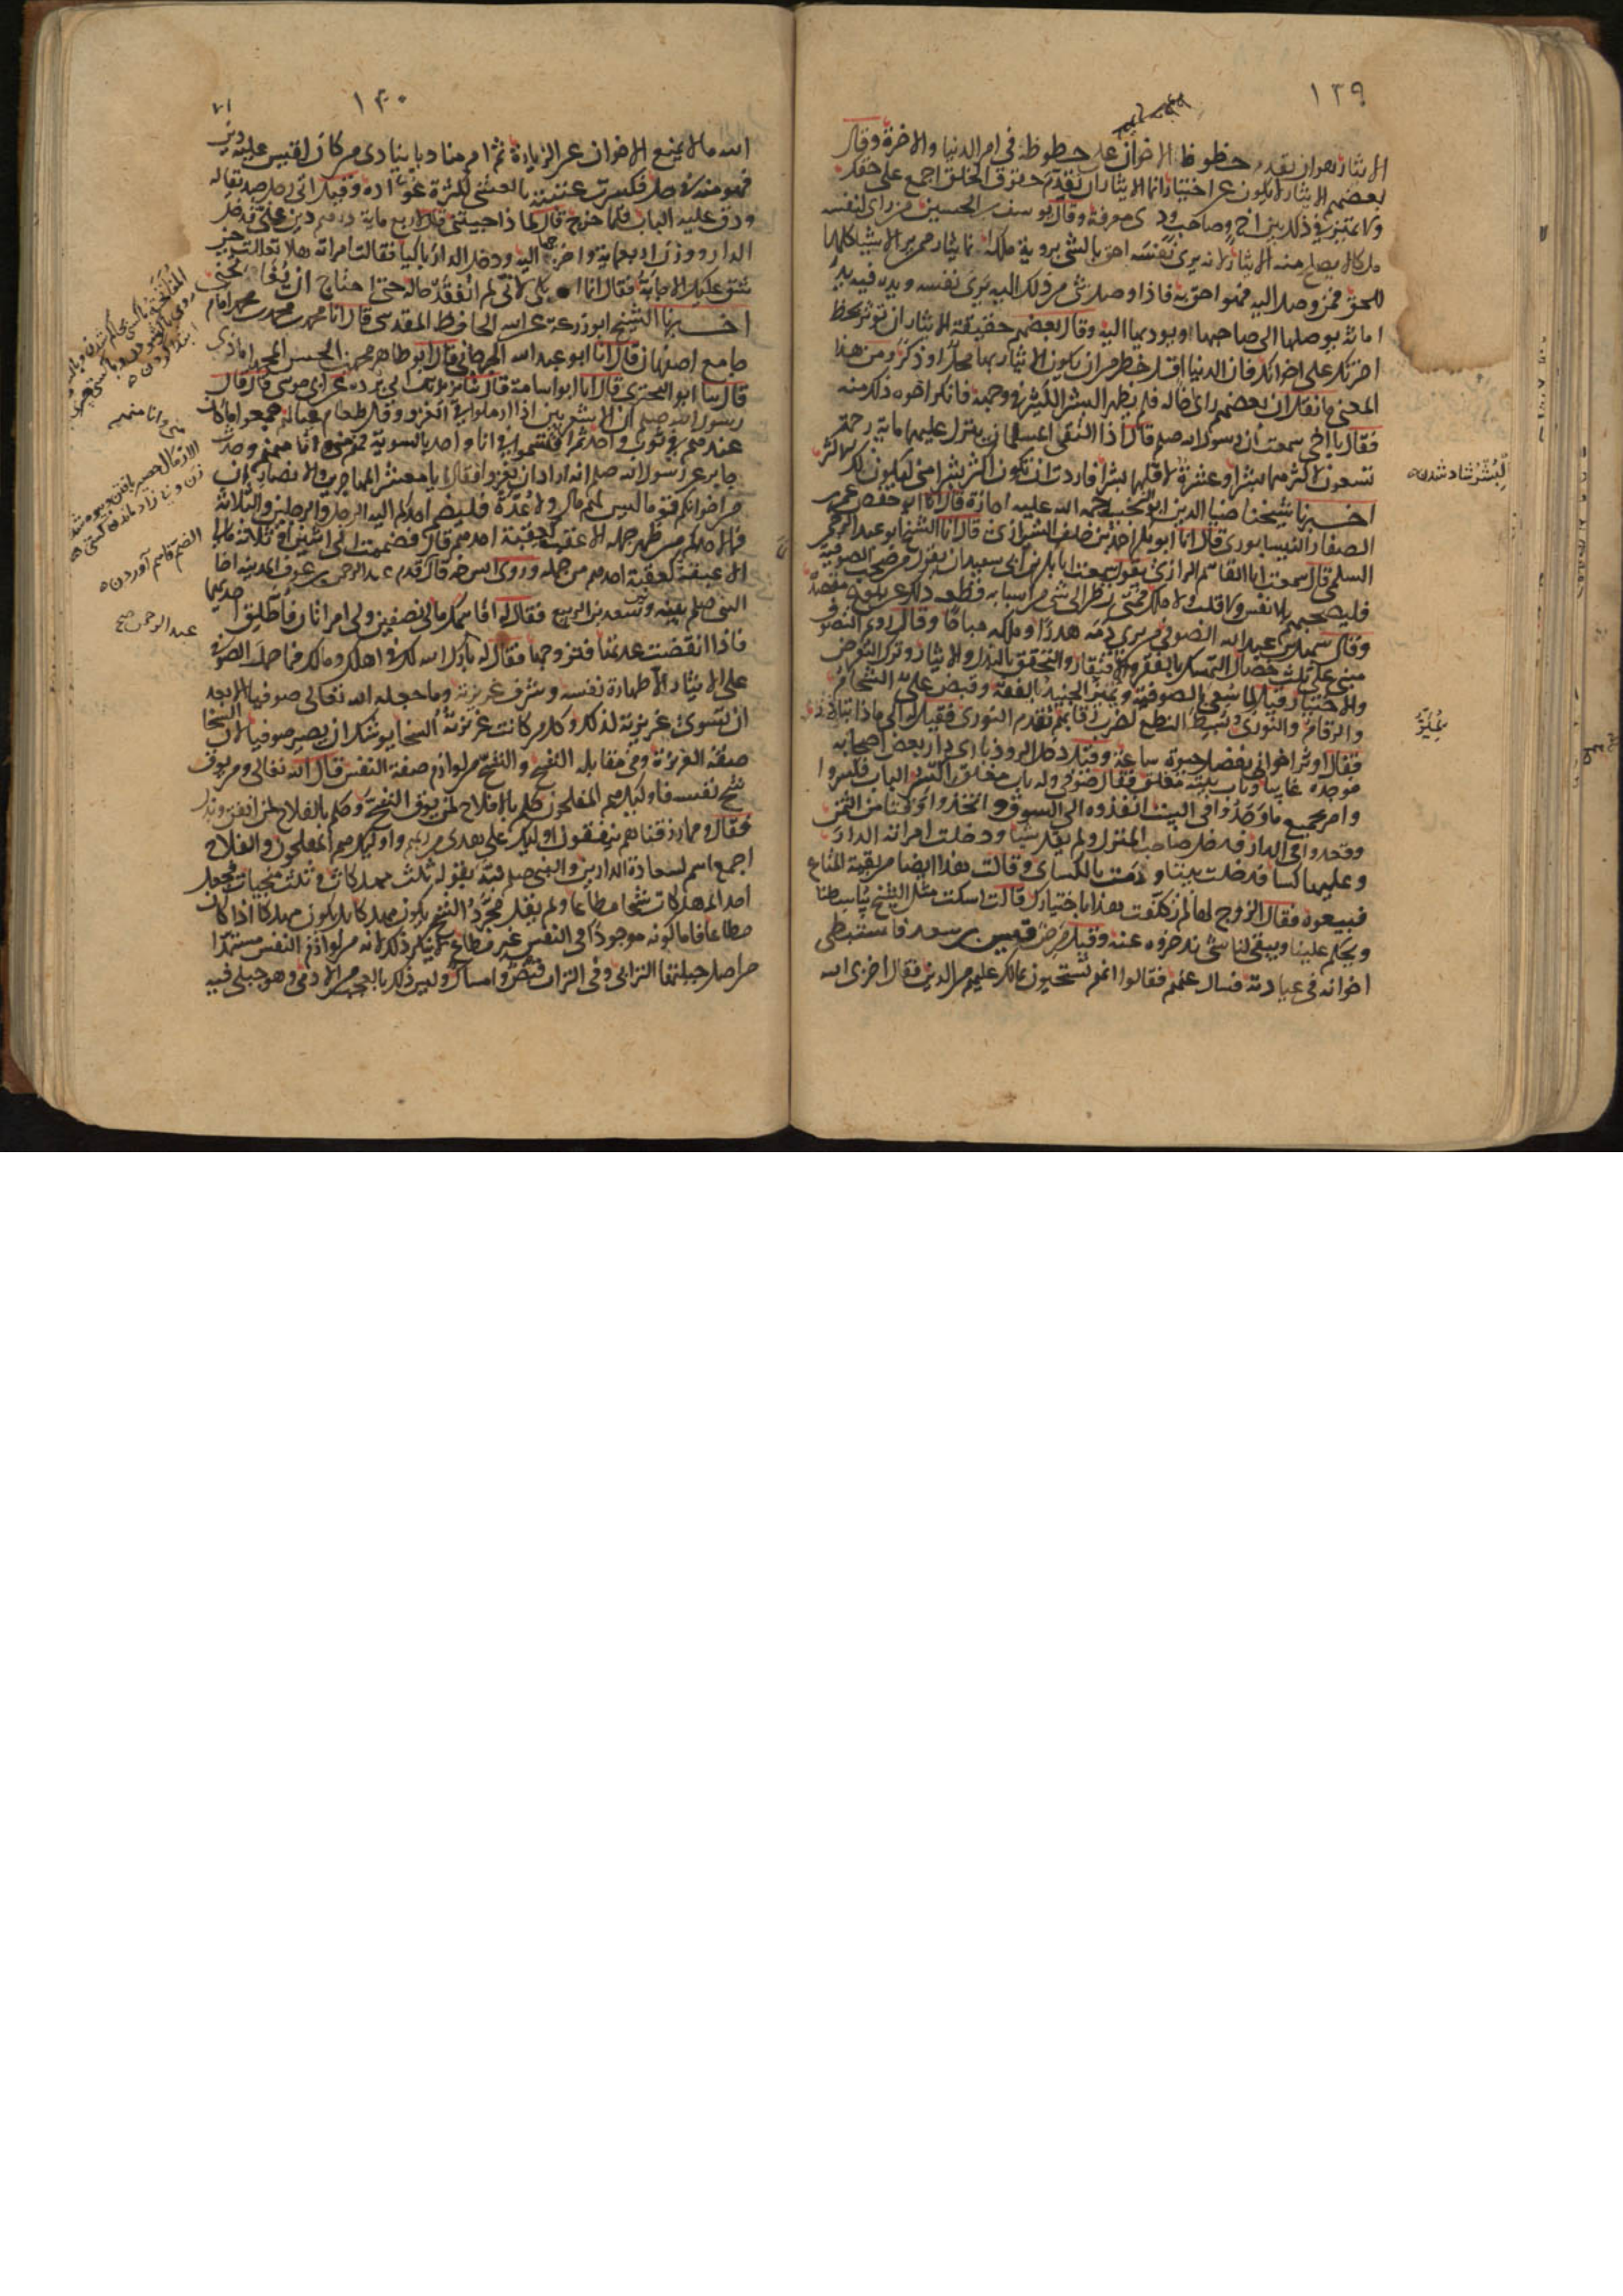 ١٣٩
الايثار هو ان يقدم حظوظ الاخوان على حظوظه فى امر الدنيا والاخرة وقال
بعضهم الايثار لا يكون عن اختيار انما الايثار ان تقدم حقوق الخلق اجمع على حقك
ولا تميز فى ذلك بين اخ وصاحب وذى معرفة وقال يوسف بن الحسين من راى لنفسه
ملكا لا يصح منه الايثار لانه يرى نفسه احق بالشى بروية ملكه انما الايثار ممن يرى الاشيا كلها
للحق فمن وصل اليه فهو احق به فاذا وصل شى من ذلك اليه يرى نفسه ويده فيه يد
امانة يوصلها الى صاحبها او يوديها اليه وقال بعضهم حقيقة الايثار ان توثر بحظ
اخرتك على اخوانك فان الدنيا اقل خطرا من ان يكون لايثارها محل او ذكر ومن هذا
المعنى ما نقل ان بعضهم راى اخا له فلم يظهر البشر الكثير فى وجهه فانكر اخوه ذلك منه
فقال يا اخى سمعت ان رسول الله صلم قال اذا التقى المسلمان ينزل عليهما ماية رحمة
تسعون لاكثرهما بشرا وعشرة لاقلهما بشرا فاردت ان تكون اكثر بشرا منى ليكون لك الاكثر
اخبرنا شيخنا ضيا الدين ابو النجيب رحمه الله عليه اجازة قال انا ابو حفص عمر بن
الصفار النيسابورى قال انا ابو بكر احمد بن خلف الشيرازى قال انا الشيخ ابو عبد الرحمن
السلمى قال سمعت ابا القاسم الرازى يقول سمعت ابا بكر بن ابى سعدان يقول من صحب الصوفية
فليصحبهم بلا نفس ولا قلب ولا ملك فمتى نظر الى شى من اسبابه قطعه ذلك عن بلوغ مقصده
وقال سهل بن عبد الله الصوفى من يرى دمه هدرا وملكه مباحا وقال رويم التصوف
مبنى على ثلث خصال التمسك بالفقر والافتقار والتحقق بالبذل والايثار وترك التعرض
والاختيار قيل لما سعى بالصوفية وتميز الجنيد بالفقه وقبض على الشحام
والرقام والنورى وبسط النطع لضرب رقابهم تقدم النورى فقيل له الى ماذا تبادر
فقال اوثر اخوانى بفضل حيوة ساعة وقيل دخل الروذبارى دار بعض اصحابه
فوجده غايبا وباب بيته مغلق فقال صوفى وله باب مغلق اكسروا الباب فكسروا
وامر بجميع ما وجدوا فى البيت انفذوه الى السوق واتخذوا وقتا من الثمن
وقعدوا فى الدار فدخل صاحب المنزل ولم يقل شيا ودخلت امراته الدار
وعليها كسا فدخلت بيتا ورمت بالكساى وقالت هذا ايضا من بقية المتاع
فبيعوه فقال الزوج لها لم تكلفت بهذا باختيارك قالت اسكت مثل الشيخ يباسطنا
ويحكم علينا ويبقى لنا شى ندخره عنه وقيل مرض قيس بن سعد فاستبطى
اخوانه فى عيادته فسال عنهم فقالوا انهم يستحيون بمالك عليهم من الدين فقال اخزى الله
البشر شاد شدن
تميز
١٤٠
٧١
الله مالا يمنع الاخوان عن الزيارة ثم امر مناديا ينادى من كان لقيس عليه دين
فهو منه فى حل فكسرت عتبته بالعشى لكثرة عواده وقيل اتى رجل صديقا له
ودق عليه الباب فلما خرج قال لماذا جيتنى قال لاربع ماية درهم دين على فدخل
الدار ووزن اربعماية واخرجها اليه ودخل الدار باكيا فقالت امراته هلا تعاللت حين
شق عليك الاجابة فقال انما ابكى لانى لم اتفقد حاله حتى احتاج ان يفاتحنى
اخبرنا الشيخ ابو زرعة عن ابيه الحافظ المقدسى قال انا محمد بن محمد امام
جامع اصفهان قال انا ابو عبد الله الجرجانى قال ابو طاهر محمد بن الحسن المحمد اباذى
قال سا ابو البخترى قال انا ابو اسامة قال سا بريد بن ابى بردة عن ابى موسى قال قال
رسول الله صلم ان الاشعريين اذا ارملوا فى الغزو وقل طعام عيالهم جمعوا ما كان
عندهم فى ثوب واحد ثم اقتسموا فى انا واحد بالسوية فهم منى وانا منهم وحدث
جابر عن رسول الله صلم انه اراد ان يغزو فقال يا معشر المهاجرين والانصار ان
من اخوانكم قوما ليس لهم مال ولا عدة فليضم احدكم اليه الرجل والرجلين والثلاثة
فما لاحدكم من ظهر جمله الا عقبة كعقبة احدهم قال فضممت الى اثنين او ثلاثة مالى
الا عقبة كعقبة احدهم من جمله وروى انس رضه قال قدم عبد الرحمن بن عوف المدينة اخا
النبى صلم بينه وبين سعد بن الربيع فقال له اقاسمك مالى نصفين ولى امراتان فاطلق احديهما
فاذا انقضت عدتها فتزوجها فقال له بارك الله لك فى اهلك ومالك فما حمل الصوفى
على الايثار الا طهارة نفسه وشرف غريزته وما جعله الله تعالى صوفيا الا بعد
ان سوى غريزته لذلك وكل من كانت غريزته السخا يوشك ان يصير صوفيا لان السخا
صفة الغريزة وفى مقابله الشح والشح من لوازم صفة النفس قال الله تعالى ومن يوق
شح نفسه فاوليك هم المفلحون حكم بالفلاح لمن يوق الشح وحكم بالفلاح لمن انفق وبذل
فقال ومما رزقناهم ينفقون اوليك على هدى من ربهم واوليك هم المفلحون والفلاح
اجمع اسم لسعادة الدارين والنبى صلم نبه بقوله ثلث مهلكات وثلث منجيات فجعل
احد المهلكات شحا مطاعا ولم يقل مجرد الشح يكون مهلكا بل يكون مهلكا اذا كان
مطاعا فاما كونه موجودا فى النفس غير مطاع لا ينكر ذلك لانه من لوازم النفس مستمدا
من اصل جبلتها الترابى وفى التراب قبض وامساك وليس ذلك بالعجب من الادمى وهو جبلى فيه
منى وانا منهم
عبد الرحمن صح